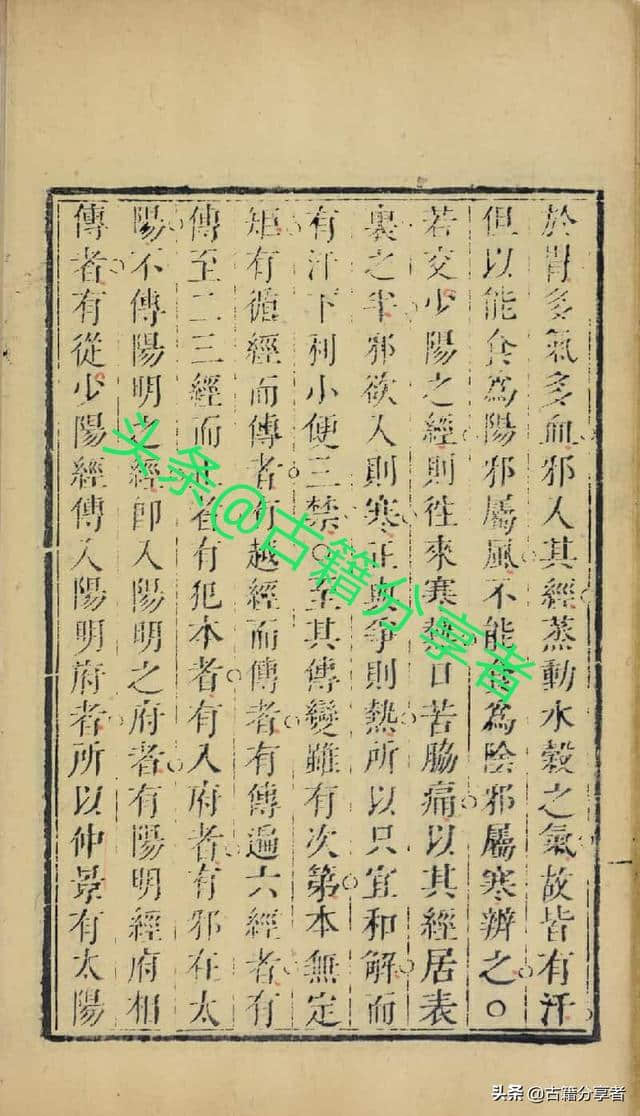 於胃多氣多血邪入其經蒸動水穀之氣故皆有汗
但以能食為陽邪屬風不能食為陰邪屬寒辨之○
若交少陽之經則往來寒熱口苦脇痛以其經居表
裏之半邪欲入則寒正與爭則熱所以只宜和解而
有汗下利小便三禁○至其傳變雖有次第本無定
矩有循經而傳者有越經而傳者有傳遍六經者有
傳至二三經而止者有犯本者有入府者有邪在太
陽不傳陽明之經即入陽明之府者有陽明經府相
傳者有從少陽經傳入陽明府者所以仲景有太陽
头条@古籍分享者
头条 @古籍分享者